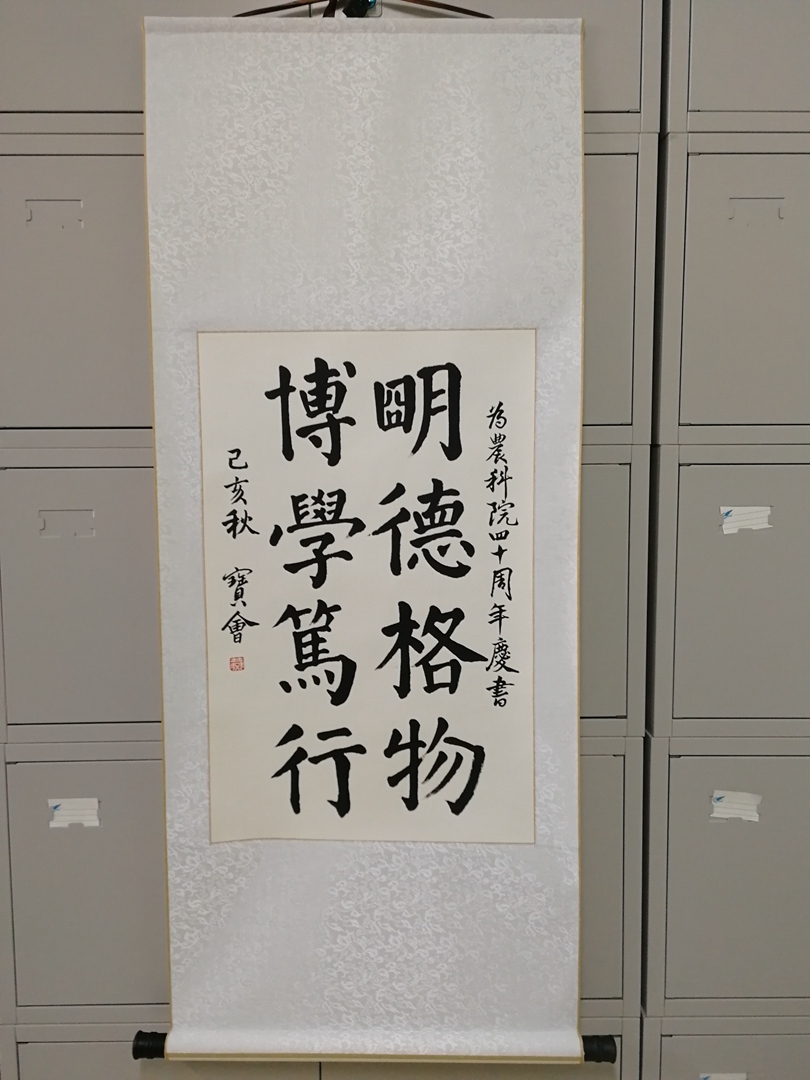 為農科院四十周年慶書
明德格物
博學篤行
己亥秋 寶會